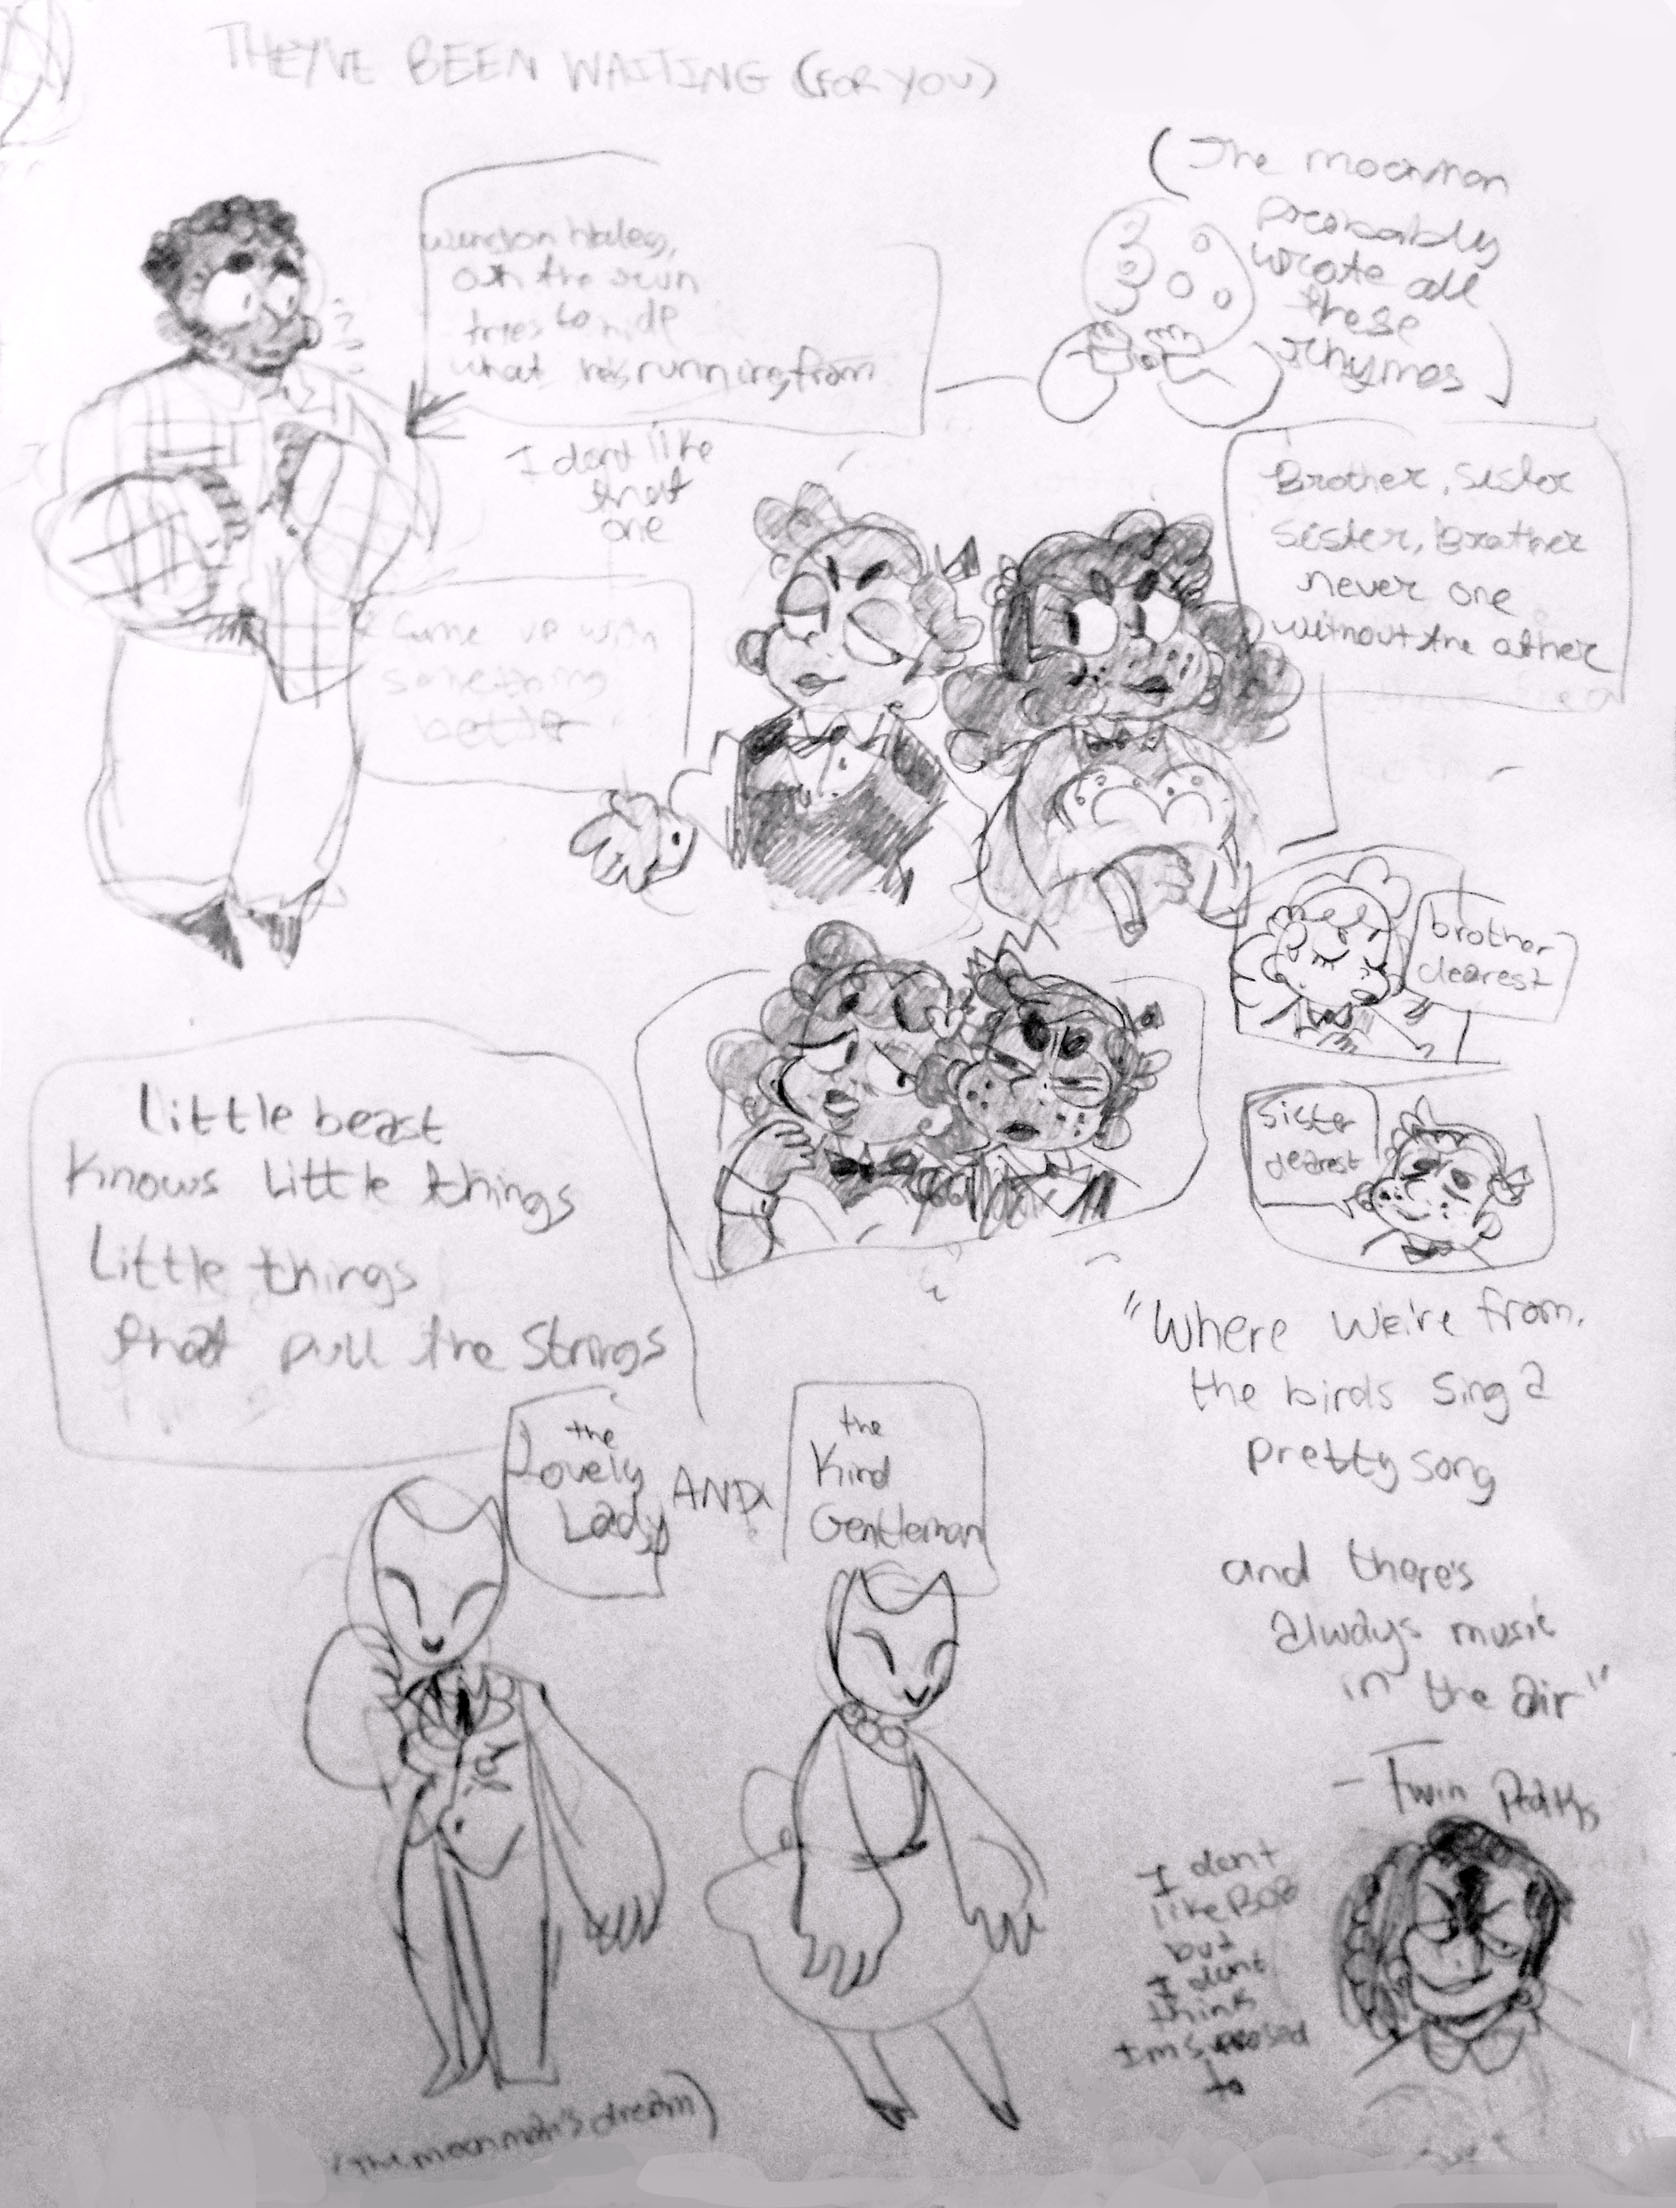 THEY'VE BEEN WAITING (FOR YOU)
(The moonman
probably
wrote all
these
rhymes)
on the run
tries to hide
what he's running from
I dont like
that
one
Came up with
something
better
Brother, Sister
Sister, Brother
never one
without the other
brother
dearest
Sister
dearest
Little beast
Knows Little things
Little things
that pull the Strings
the
Lovely
Lady
AND
the
Kind
Gentleman
"Where We're from,
the birds Sing a
Pretty song
and there's
always music
in the air"
- Twin Peaks
I dont
like BOB
but
I dont
think
Im supposed
to
(the moonman's dream)